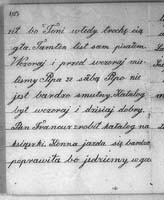 105
rił bo Toni wtedy trochę się
gła. Tamten list sam pisałem.
Wczoraj i przed wczoraj mie-
liśmy Pipa ze sobą Pipo nie
jest bardzo smutny. Katalog
był wczoraj i dzisiaj dobry.
Pan Francuz zrobił katalog na
książki. Konna jazda się bardzo
poprawiła bo jedziemy w ga-